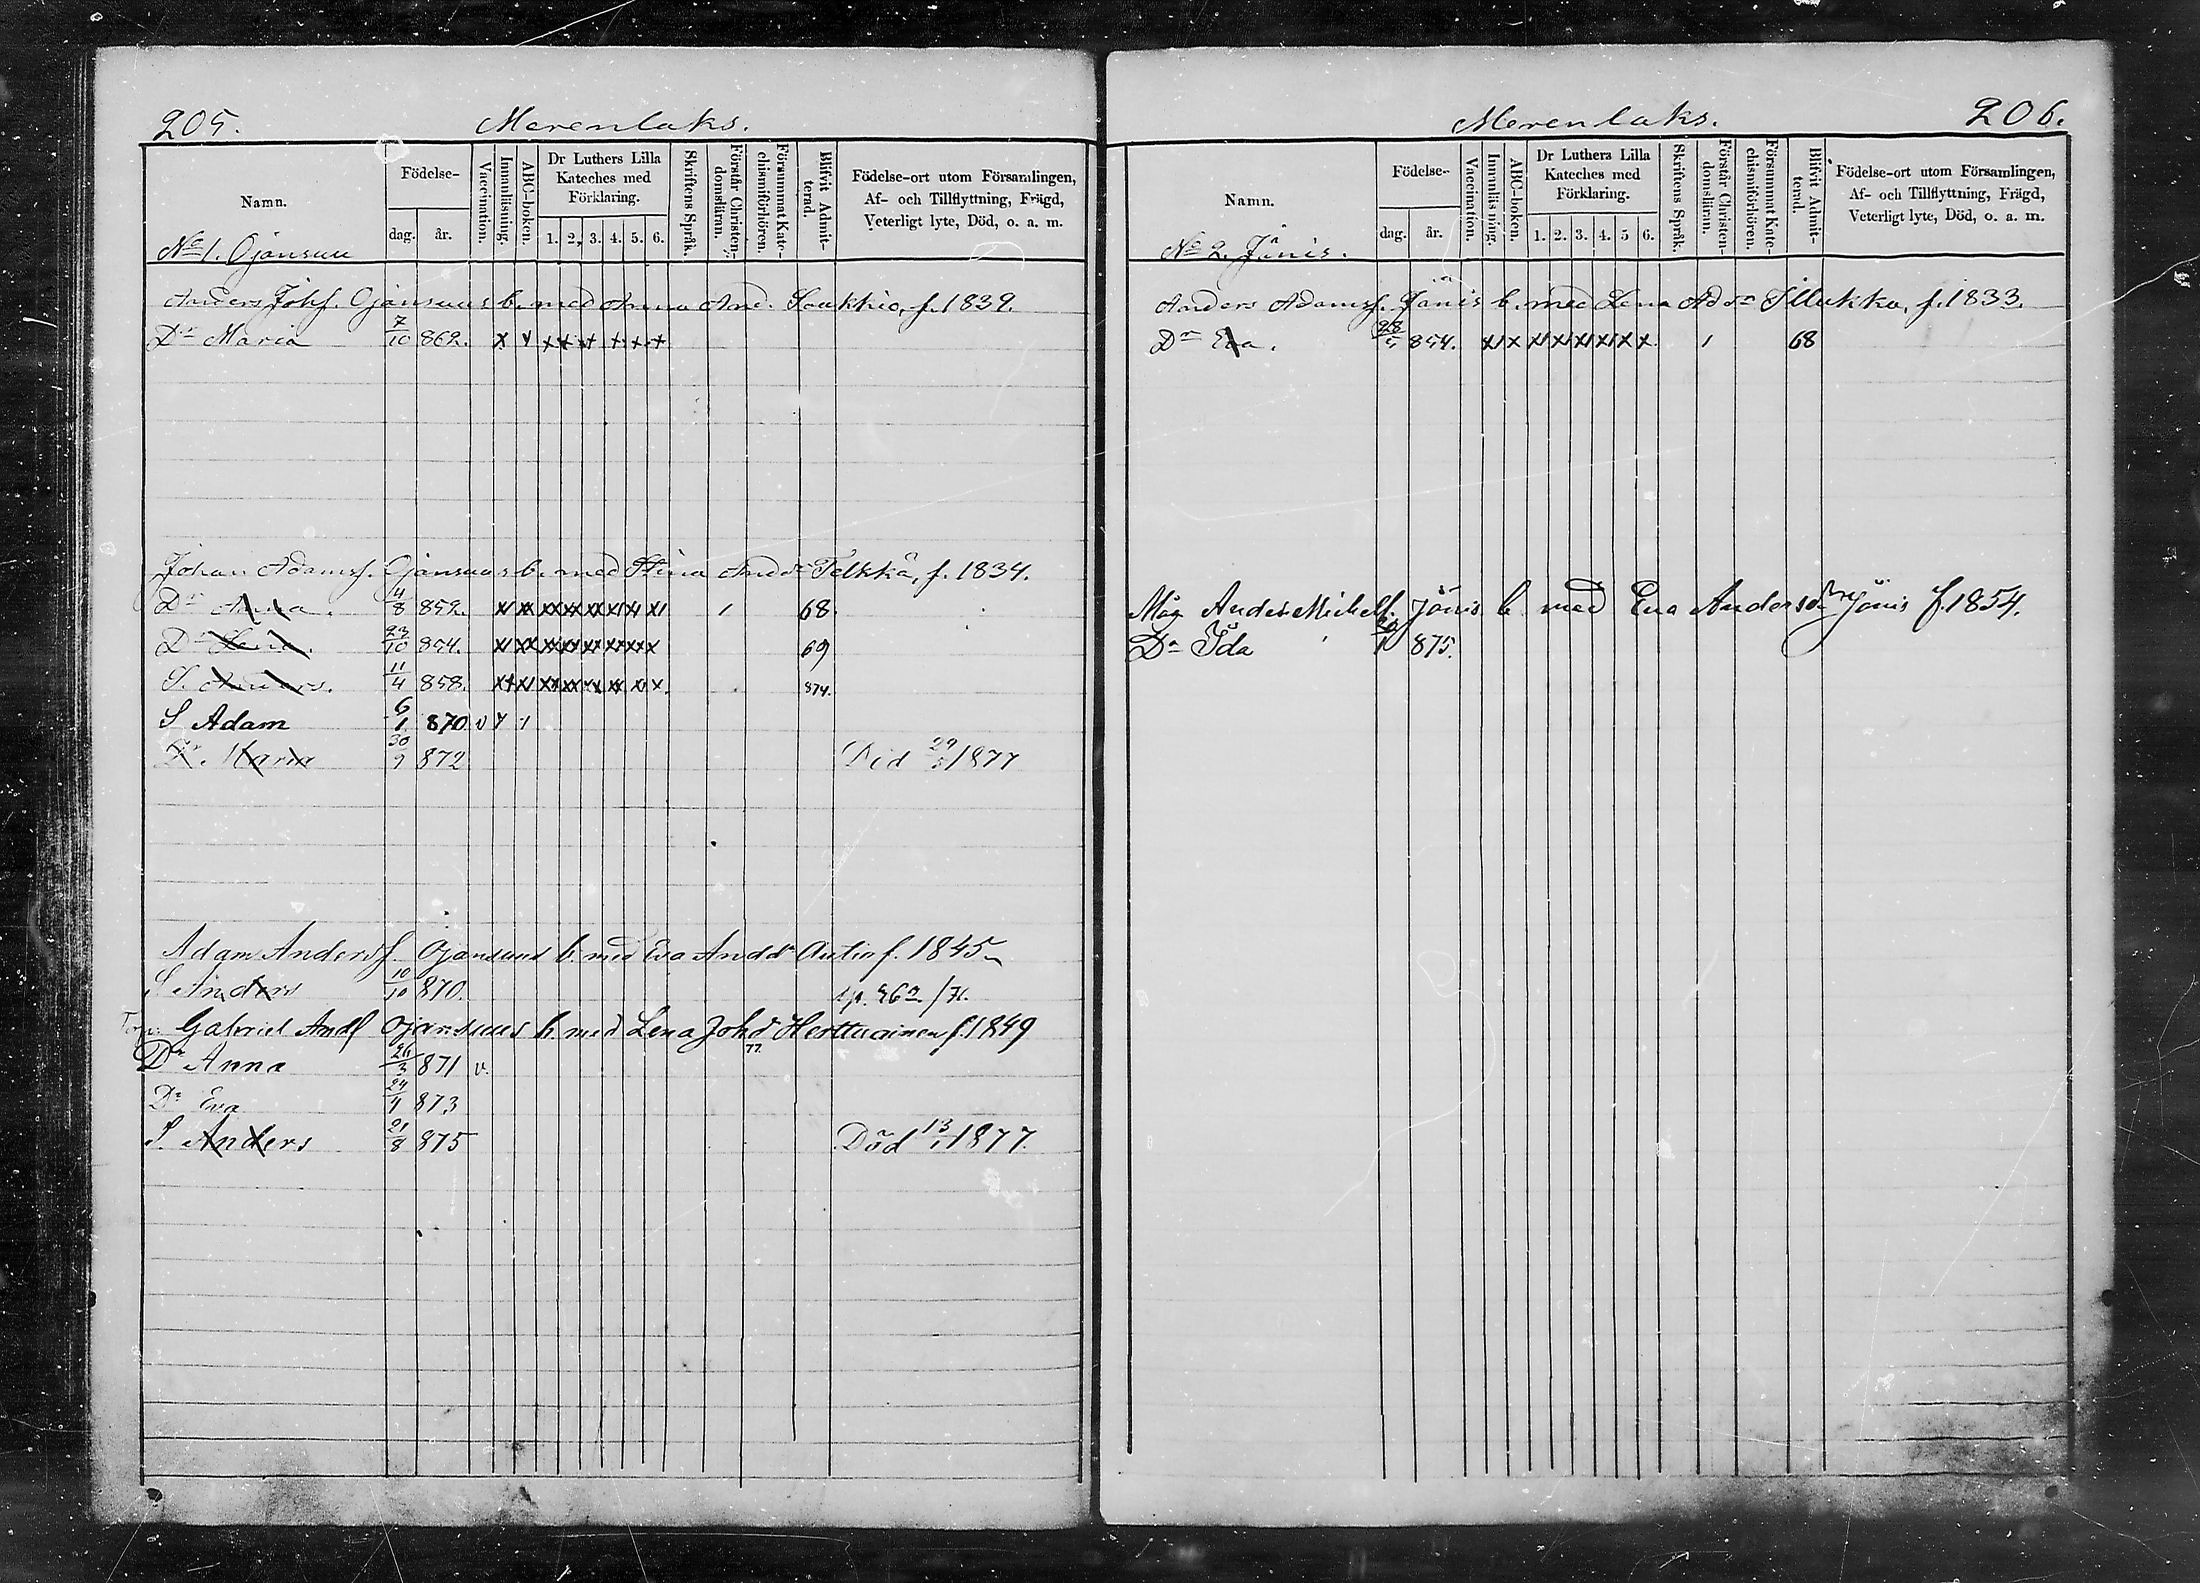 205. Merenlaks.
Namn.
Födelse-
dag. år.
Vaccination.
Innanläsning.
ABC-boken.
Dr Luthers Lilla Kateches med Förklaring.
1. 2. 3. 4. 5. 6.
Skriftens Språk.
Förstår Christen-domsläran.
Försummat Kate-chismiförhören.
Blifvit Admit-terad.
Födelse-ort utom Församlingen,
Af- och Tillflyttning, Frägd,
Veterligt lyte, Död, o. a. m.
No 1. Ojansuu
Anders Johs. Ojansuus b. med Anna And. f. 1839.
Dr Maria 7/10 862. x x x x x x x x
Johan Adamss. Ojansuus b. med Stina Andr Telkkä, f. 1834.
Dr Anna. 4/8 852. 1 68.
Dr Lena. 23/10 854. 69
S. Anders. 11/4 858. 874.
S Adam 6/1 870 v
Dr. Maria 30/9 872 Död 1877
Adam Anderss. Ojansuus b. med Eva Anddr Autio f. 1845
S Anders 10/10 870. sp. 462/71.
Gabriel Ands Ojansuus b. med Lena Johd Herttuainen f. 1849
77.
Dr Anna 26/3 871 v.
Dr Eva 24/4 873
S. Anders 21/8 875 Död 13/1 1877.
Merenlaks. 206.
Namn.
Födelse-
dag. år.
Vaccination.
Innanläsning.
ABC-boken.
Dr Luthers Lilla Kateches med Förklaring.
1. 2. 3. 4. 5 6.
Skriftens Språk.
Förstår Christen-domsläran.
Försummat Kate-chismiförhören.
Blifvit Admit-terad.
Födelse-ort utom Församlingen,
Af- och Tillflyttning, Frägd,
Veterligt lyte, Död, o. a. m.
No 2. Jänis.
Anders Adamss. Jänis b. med Lena Addr Illukka, f. 1833.
Dr Eva. 28/5 854. 1 68
Måg Anders Michelss. Jänis b. med Eva Andersdr Jänis f. 1854.
Dr Ida 875.